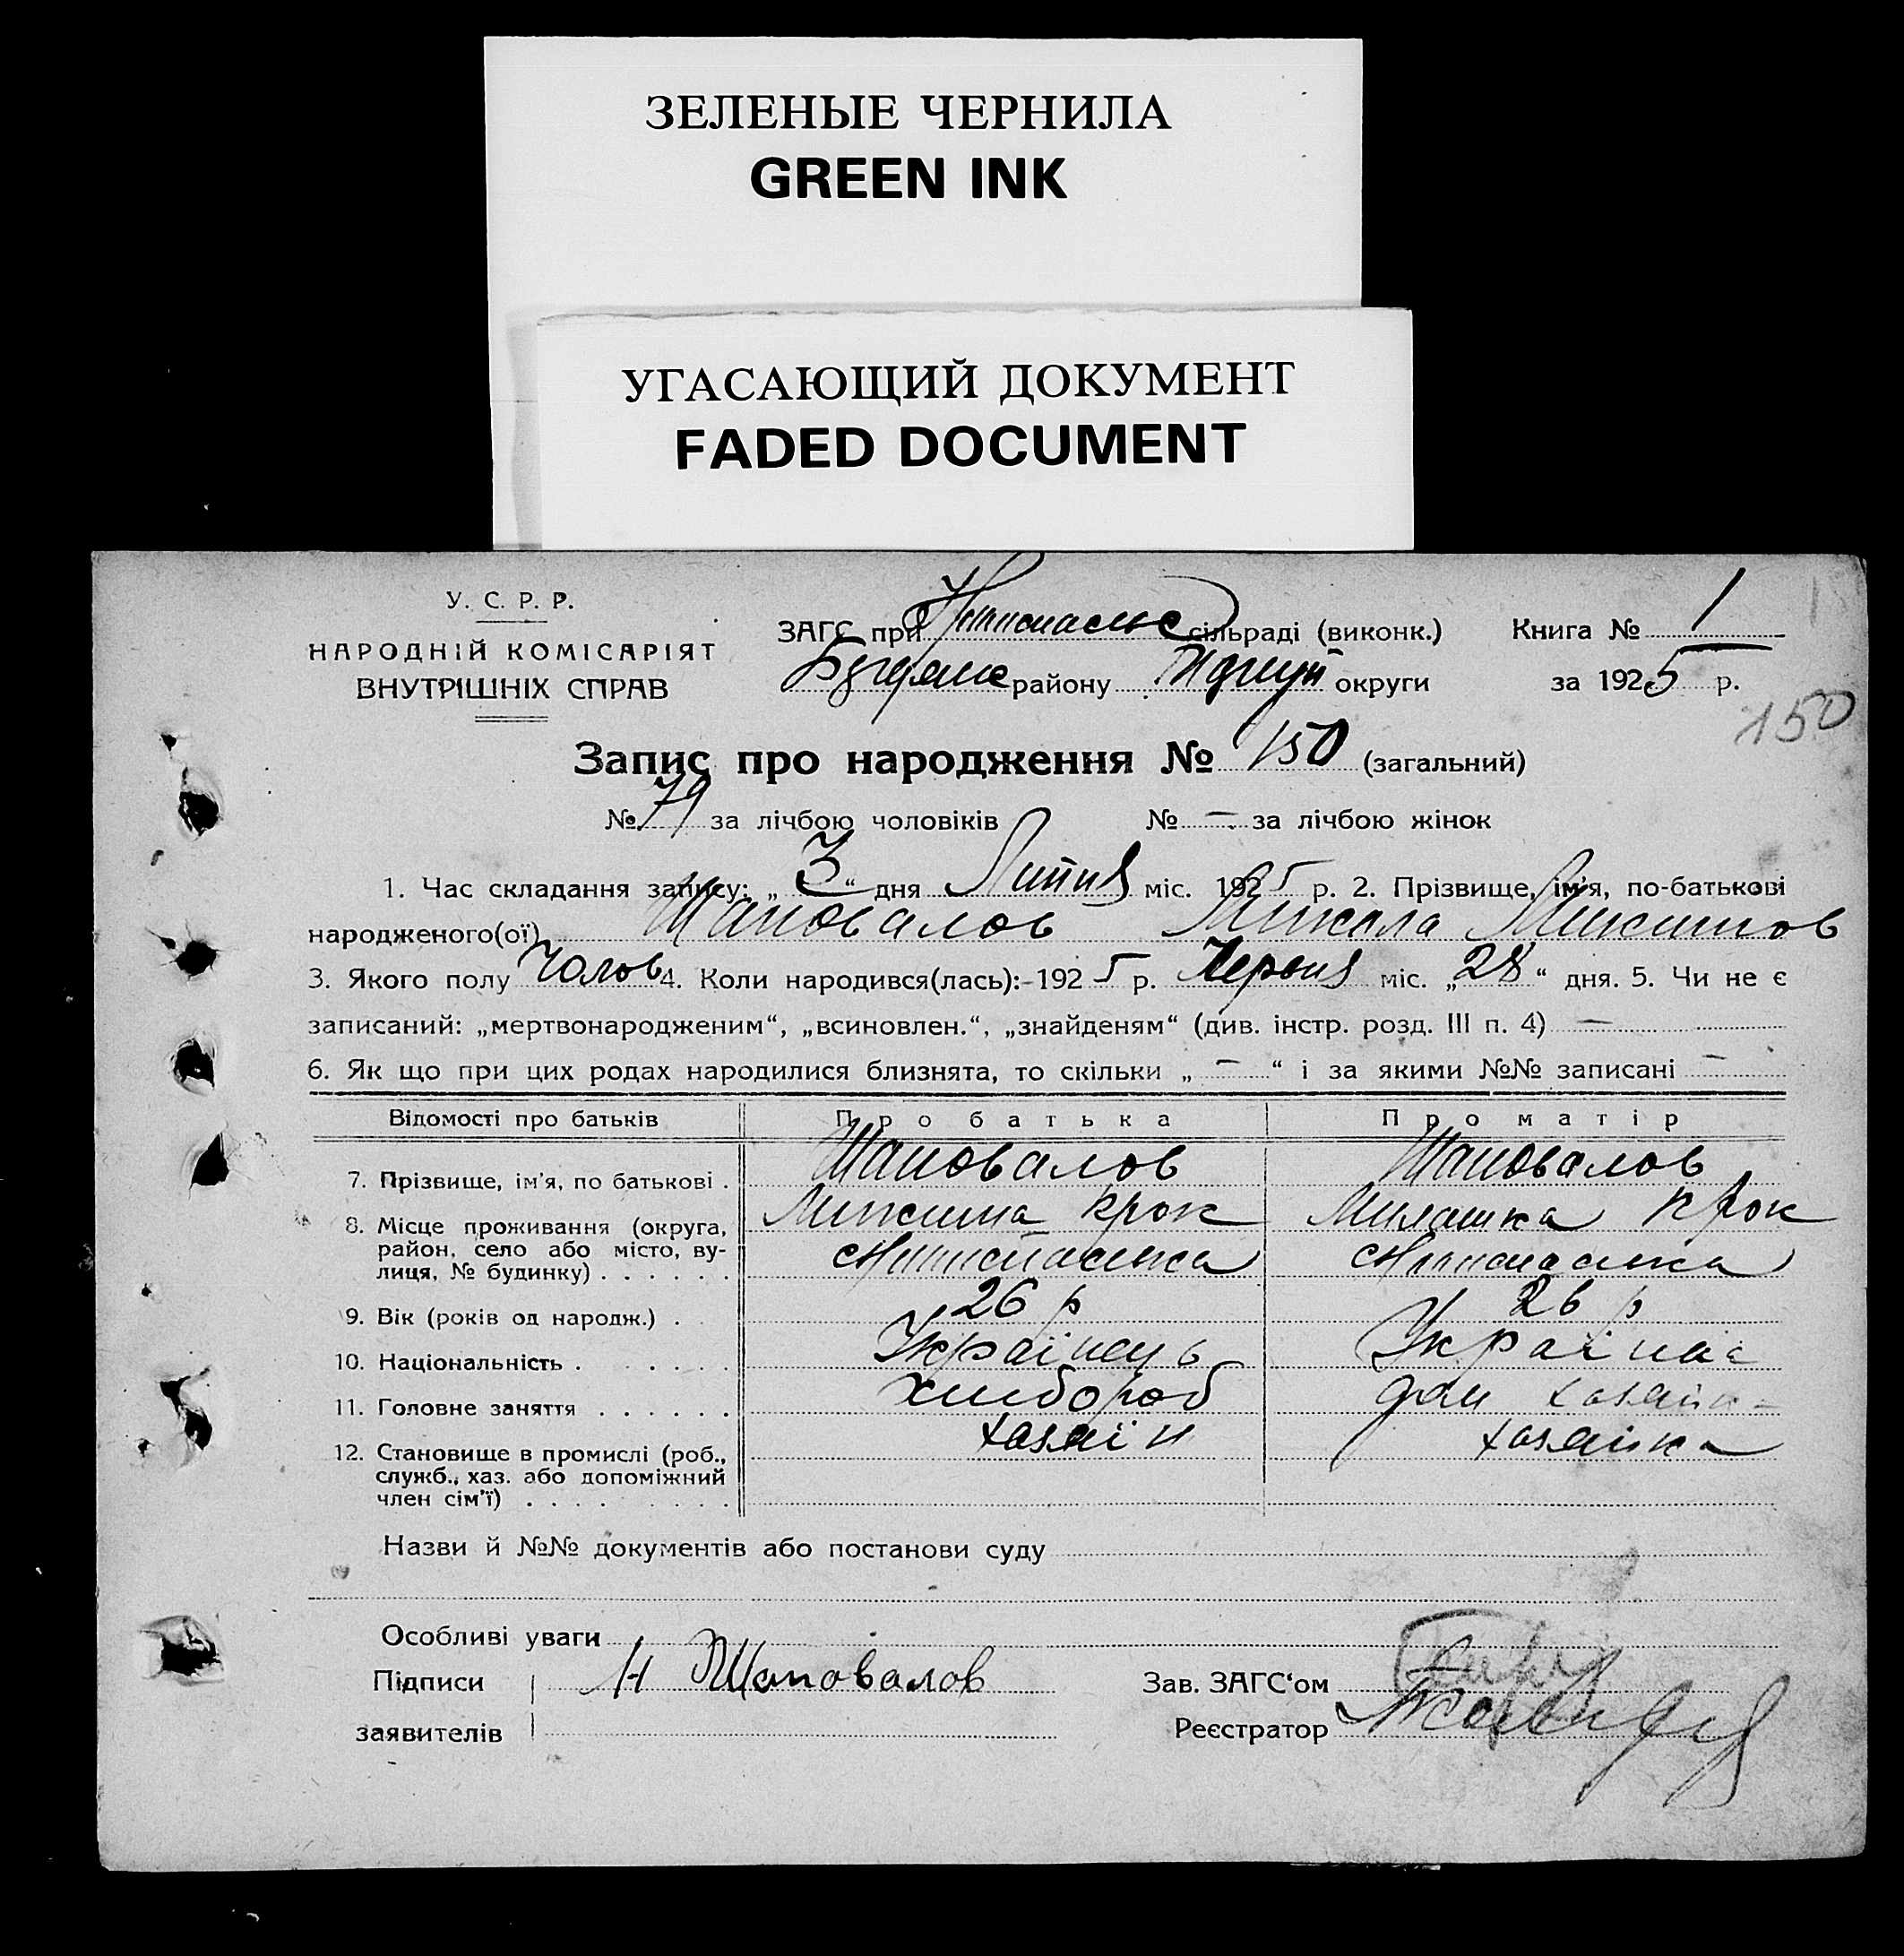 ЗЕЛЕНЫЕ ЧЕРНИЛА
GREEN INK
УГАСАЮЩИЙ ДОКУМЕНТ
FADED DOCUMENT
У. С. Р. Р.
НАРОДНІЙ КОМІСАРІЯТ
ВНУТРІШНІХ СПРАВ
ЗАГС при сільраді (виконк.) Книга № 1
району округи за 1925 р.
150
Запис про народження № 150 (загальний)
№ 79 за лічбою чоловіків № — за лічбою жінок
1. Час складання запису: „ 3 “ дня Липня міс. 1925 р. 2. Прізвище, ім'я, по-батькові
народженого(ої) Шаповалов Микола Микитов
3. Якого полу Чолов 4. Коли народився(лась): 1925 р. Червня міс. „ 28 “ дня. 5. Чи не є
записаний: „мертвонародженим“, „всиновлен.“, „знайденям“ (див. інстр. розд. III п. 4) —
6. Як що при цих родах народилися близнята, то скільки „ — “ і за якими №№ записані —
Відомості про батьків Про батька Про матір
7. Прізвище, ім'я, по батькові . Шаповалов Шаповалов
8. Місце проживання (округа, Микита
район, село або місто, ву-
лиця, № будинку) . . . . . .
9. Вік (років од народж.) . 26 р 26 р
10. Національність . . . . . Українець
11. Головне заняття . . . . . . Хлибороб дом хазяйк
12. Становище в промислі (роб., хазяїн хазяйка
служб., хаз. або допоміжний
член сім'ї) . . . . . . . . .
Назви й №№ документів або постанови суду
Особливі уваги
Підписи Н Шаповалов Зав. ЗАГС‘ом
заявителів Реєстратор